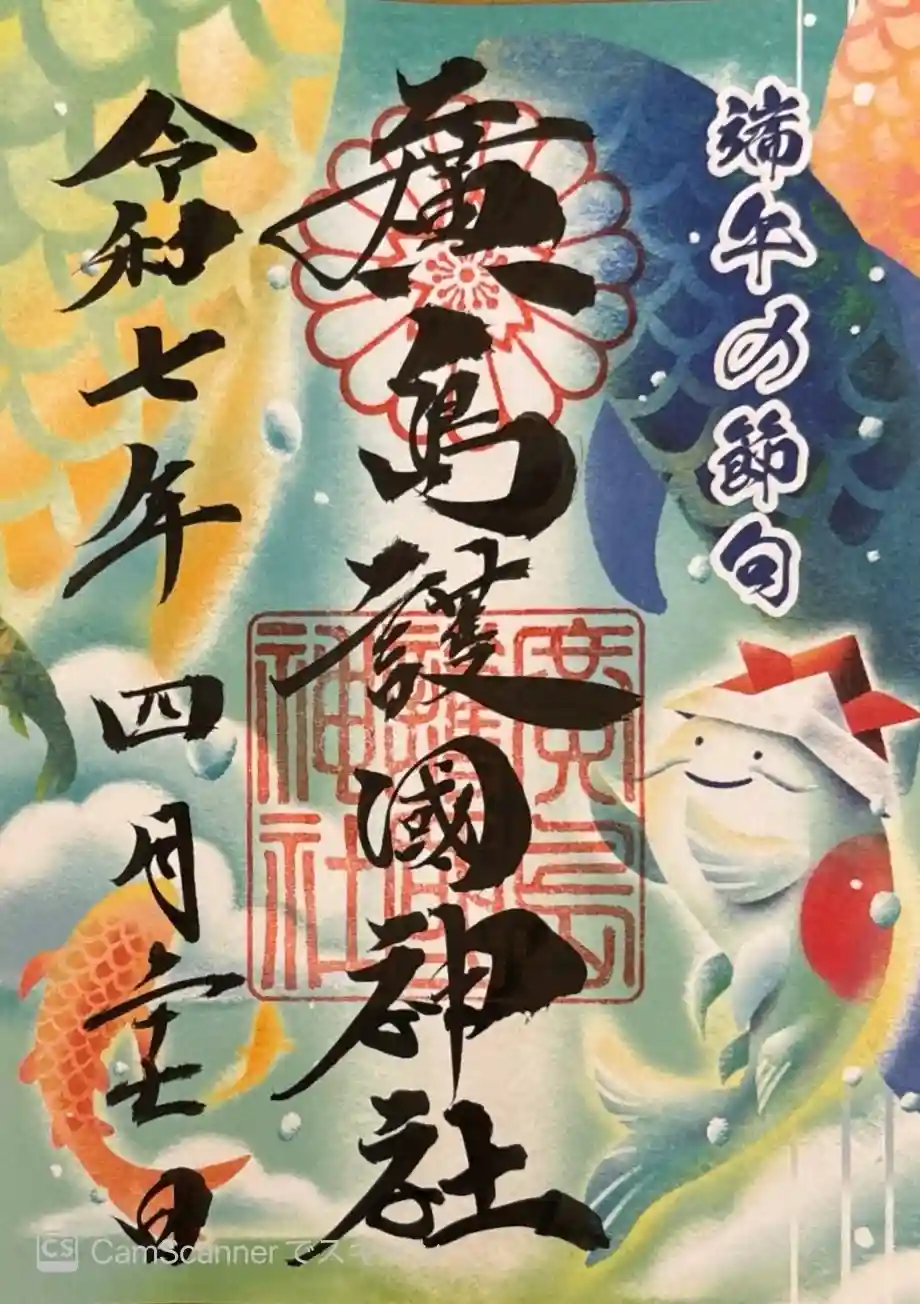 端午の節句
廣島護國神社
廣島
護國
神社
令和七年四月二十七日
CS CamScanner でスキ